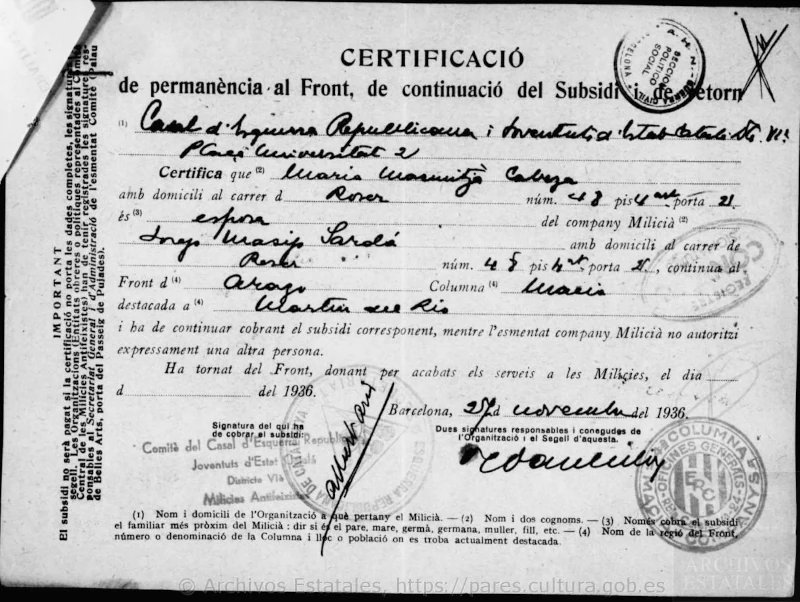 CERTIFICACIÓ
de permanència al Front, de continuació del Subsidi i de retorn
(1) Casal d'Esquerra Republicana i Joventuts d'Estat Català Dte. VIè
Plaça Universitat 2
Certifica que (2) Maria Masmitjà Cabeza
amb domicili al carrer d Roser núm. 48 pis 4 art porta 2ª
és (3) esposa del company Milicià (2)
Josep Masip Sardá amb domicili al carrer de
Roser núm. 48 pis 4 art porta 2ª, continua al
Front d (4) Arago Columna (4) Macia
destacada a (4) Martin del Rio
i ha de continuar cobrant el subsidi corresponent, mentre l'esmentat company Milicià no autoritzi
expressament una altra persona.
Ha tornat del Front, donant per acabats els serveis a les Milicies, el dia
d del 1936.
Barcelona, 27 d novembre del 1936.
Signatura del qui ha
de cobrar el subsidi:
Dues signatures responsables i conegudes de
l'Organització i el Segell d'aquesta.
Comitè del Casal d'Esquerra Republicana
Joventuts d'Estat Català
Districte VIè
Milícies Antifeixistes
(1) Nom i domicili de l'Organització a què pertany el Milicià. — (2) Nom i dos cognoms. — (3) Només cobra el subsidi
el familiar més pròxim del Milicià : dir si és el pare, mare, germà, germana, muller, fill, etc. — (4) Nom de la regió del Front,
número o denominació de la Columna i lloc o població on es troba actualment destacada.
IMPORTANT
El subsidi no serà pagat si la certificació no porta les dades completes, les signatures
segell. - Les Organitzacions (Entitats obreres o polítiques representades al Comitè
Central de les Milícies Antifeixistes) han de tenir registrades les signatures res-
ponsables al Secretariat General i d'Administració de l'esmentat Comitè (Palau
de Belles Arts, porta del Passeig de Pujades).
A. H. N. - GUERRA CIVIL
SECCIÓ
POLITICO
SOCIAL
BARCELONA
COLUMNA
OFICINES GENERALS
ERC
© Archivos Estatales, https://pares.cultura.gob.es
ARCHIVOS
ESTATALES